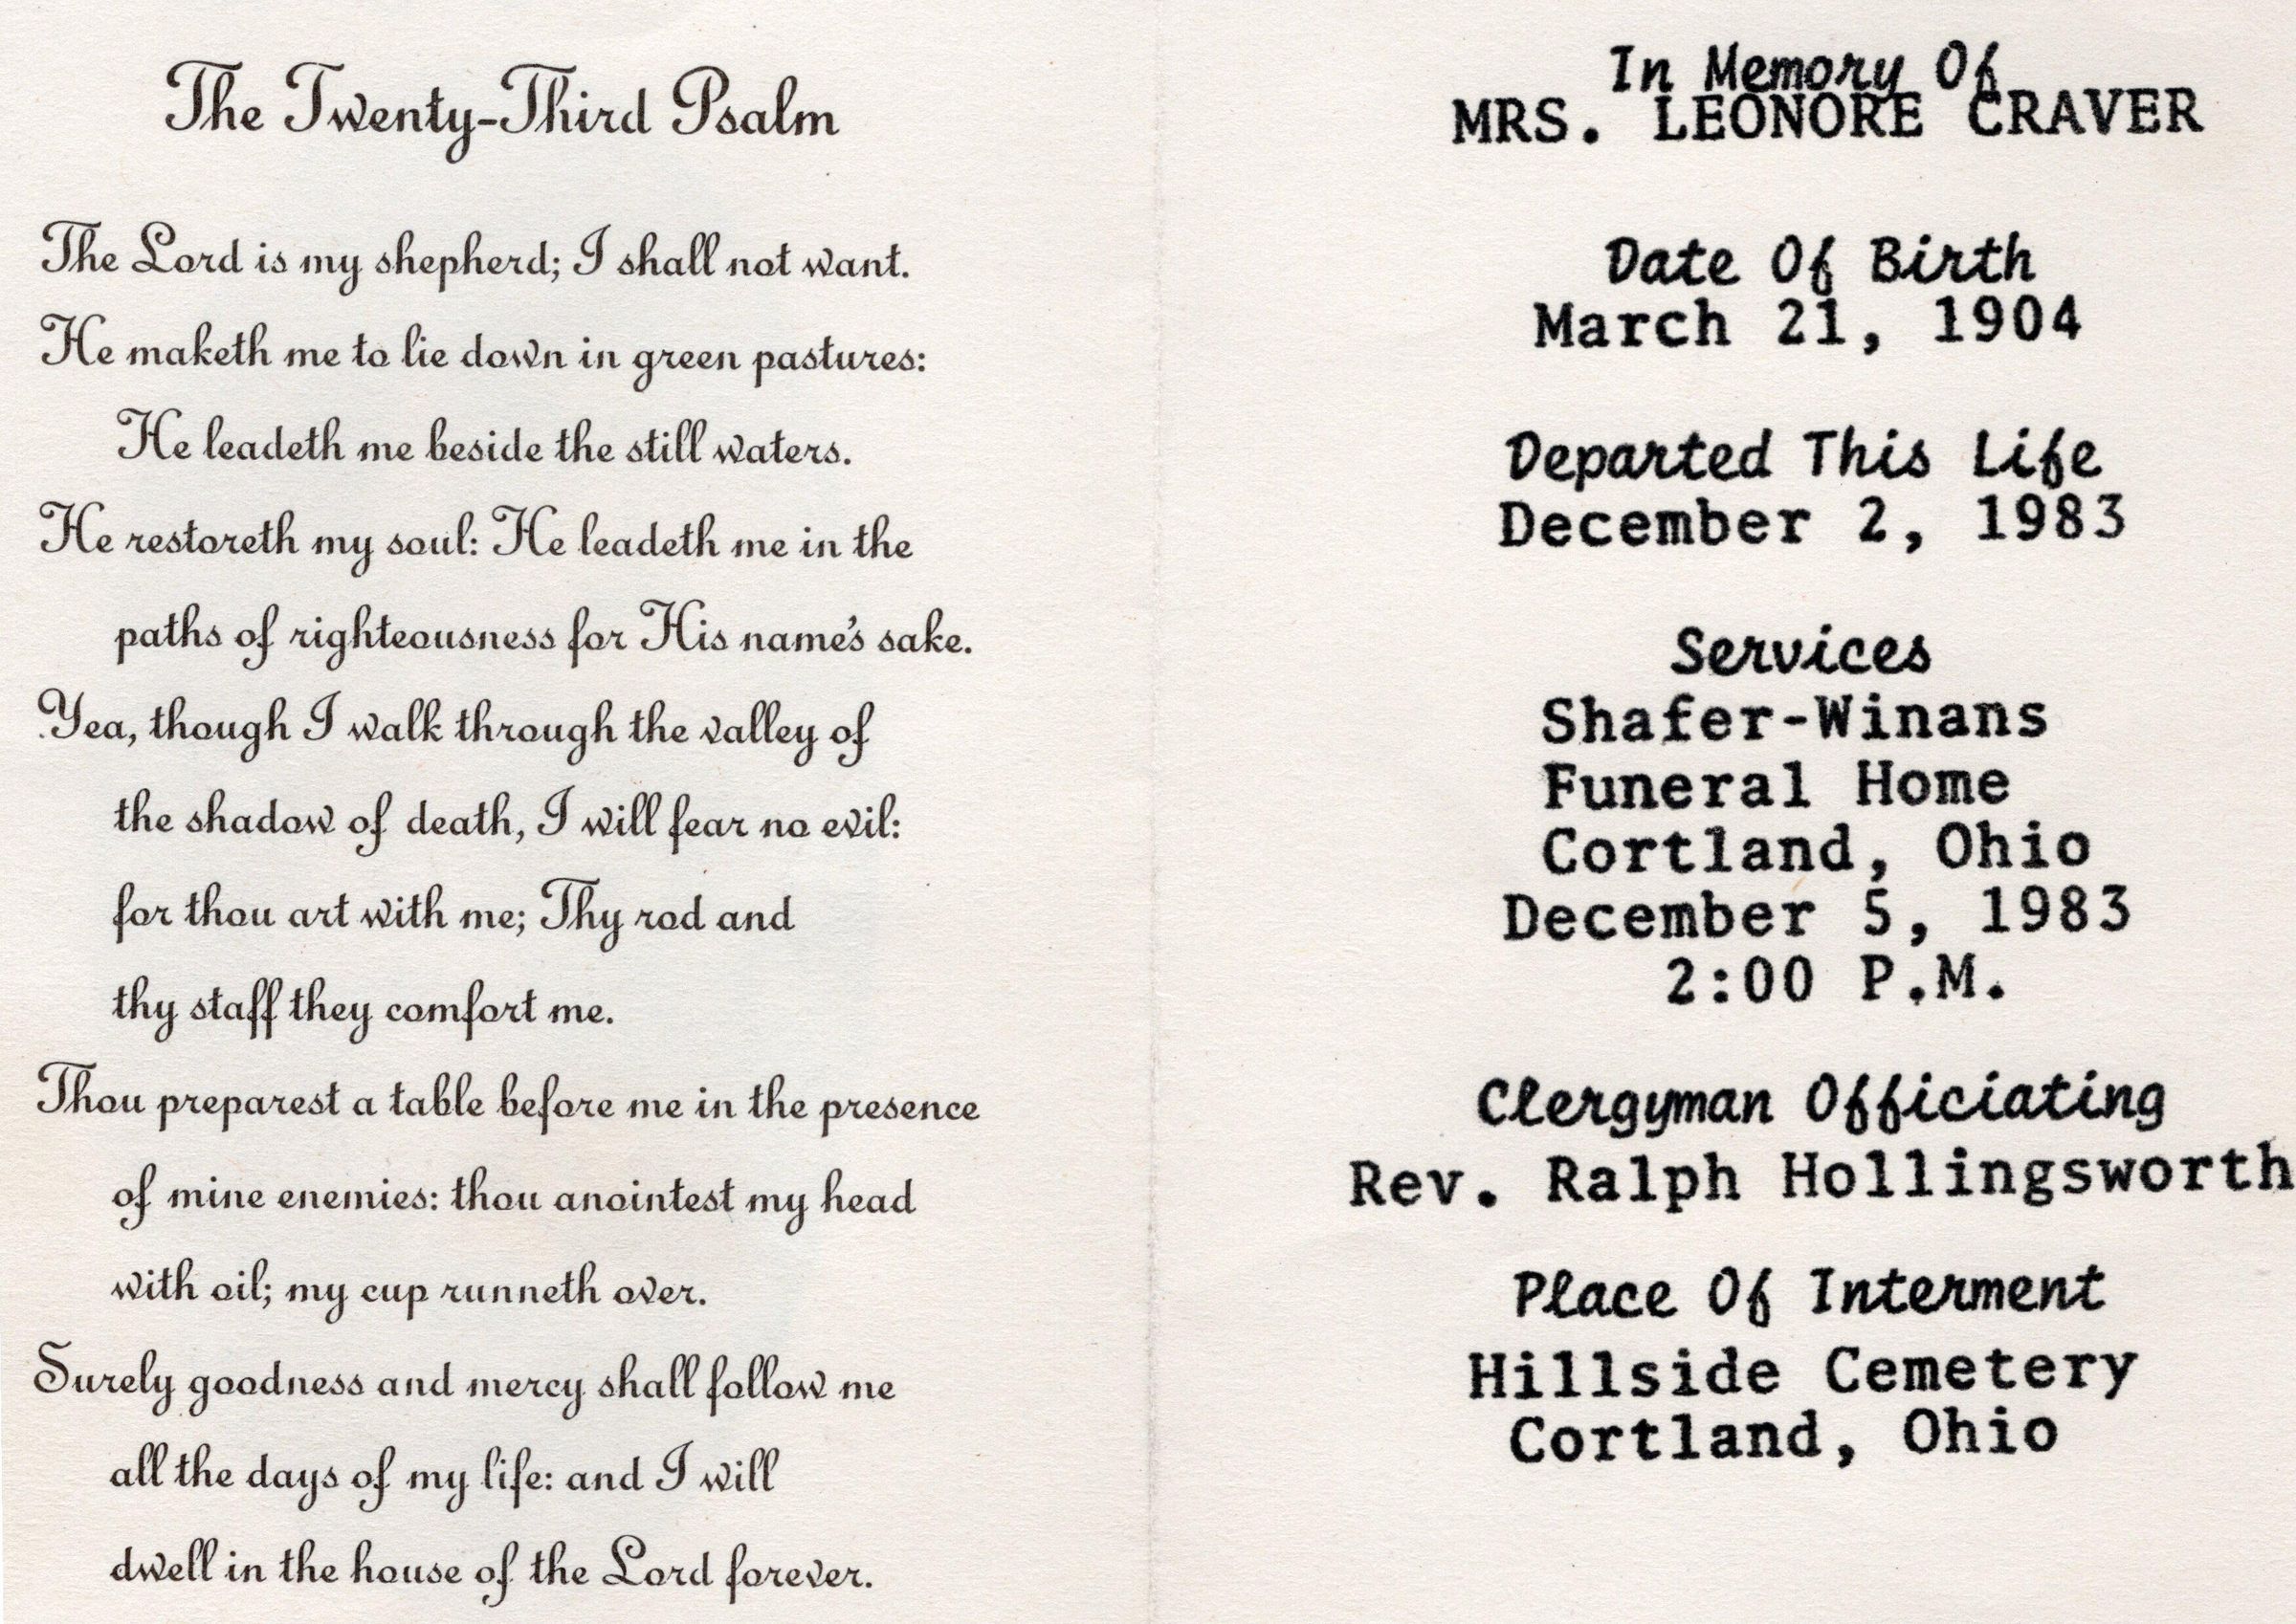 The Twenty-Third Psalm
The Lord is my shepherd; I shall not want.
He maketh me to lie down in green pastures:
He leadeth me beside the still waters.
He restoreth my soul: He leadeth me in the
paths of righteousness for His name's sake.
Yea, though I walk through the valley of
the shadow of death, I will fear no evil:
for thou art with me; Thy rod and
thy staff they comfort me.
Thou preparest a table before me in the presence
of mine enemies: thou anointest my head
with oil; my cup runneth over.
Surely goodness and mercy shall follow me
all the days of my life: and I will
dwell in the house of the Lord forever.
In Memory Of
MRS. LEONORE CRAVER
Date Of Birth
March 21, 1904
Departed This Life
December 2, 1983
Services
Shafer-Winans
Funeral Home
Cortland, Ohio
December 5, 1983
2:00 P.M.
Clergyman Officiating
Rev. Ralph Hollingsworth
Place Of Interment
Hillside Cemetery
Cortland, Ohio